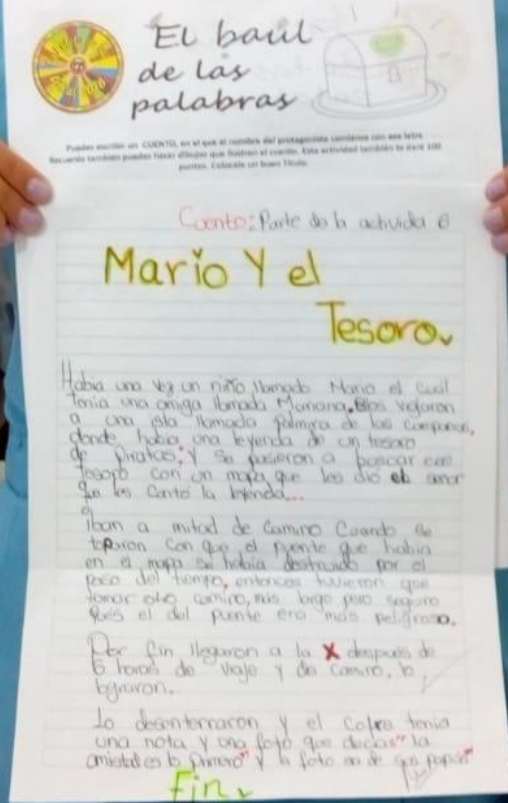 El baúl
de las
palabras
Puedes escribir un CUENTO, en el que el nombre del protagonista comience con esa letra
Recuerda también puedes hacer dibujos que ilustren el cuento. Esta actividad también te dará 100
puntos. Colócale un buen Título
Cuento: Parte de la activida 6
Mario Y el
Tesoro.
Habia una vez un niño llamado Mario el cual
tenia una amiga llamada Mariana. Ellos viajaron
a una isla llamada palmira de las campanas,
donde había una leyenda de un tesoro
de piratas; Y se pusieron a buscar ese
tesoro con un mapa que les dio el señor
que les contó la leyenda...
iban a mitad de camino Cuando se
toparon con que el puente que había
en el mapa se había destruido por el
paso del tiempo, entonces tuvieron que
tomar otro camino, más largo pero seguro
pués el del puente era más peligroso.
Por fin llegaron a la X después de
6 horas de viaje y de camino, lo
lograron.
Lo desenterraron y el cofre tenia
una nota y una foto que decia "la
amistad es lo primero" y la foto era de sus papás
Fin.